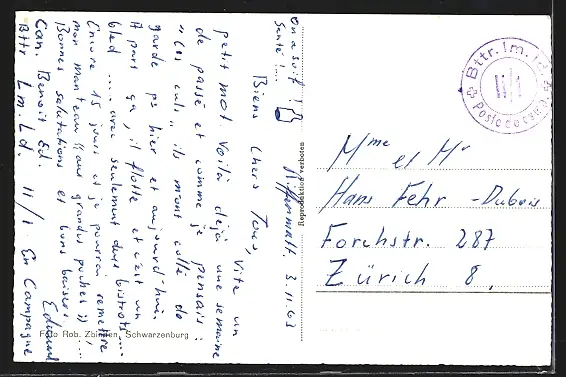 On a soif !
Santé !...
Riffenmatt 3.11.63
Biens chers Tous, Vite un
petit mot. Voilà déjà une semaine
de passé et comme je pensais :
"Ces culs" ils m'ont collé de
garde ps hier et aujourd'hui.
A part ça, il flotte et c'est un
bled ... avec seulement deux bistrots...
Encore 15 jours et je pourrai remettre
mon manteau "aux grandes poches"...
Bonnes salutations et bons baisers
Edouard
Can. Benoit Ed.
Bttr L.m. Ld. II/1 En Campagne
Foto Rob. Zbinden, Schwarzenburg
Reproduktion verboten
Bttr. lm. ld.
II/1
Poste de camp
Mme et Mr
Hans Fehr - Dubois
Forchstr. 287
Zürich 8.